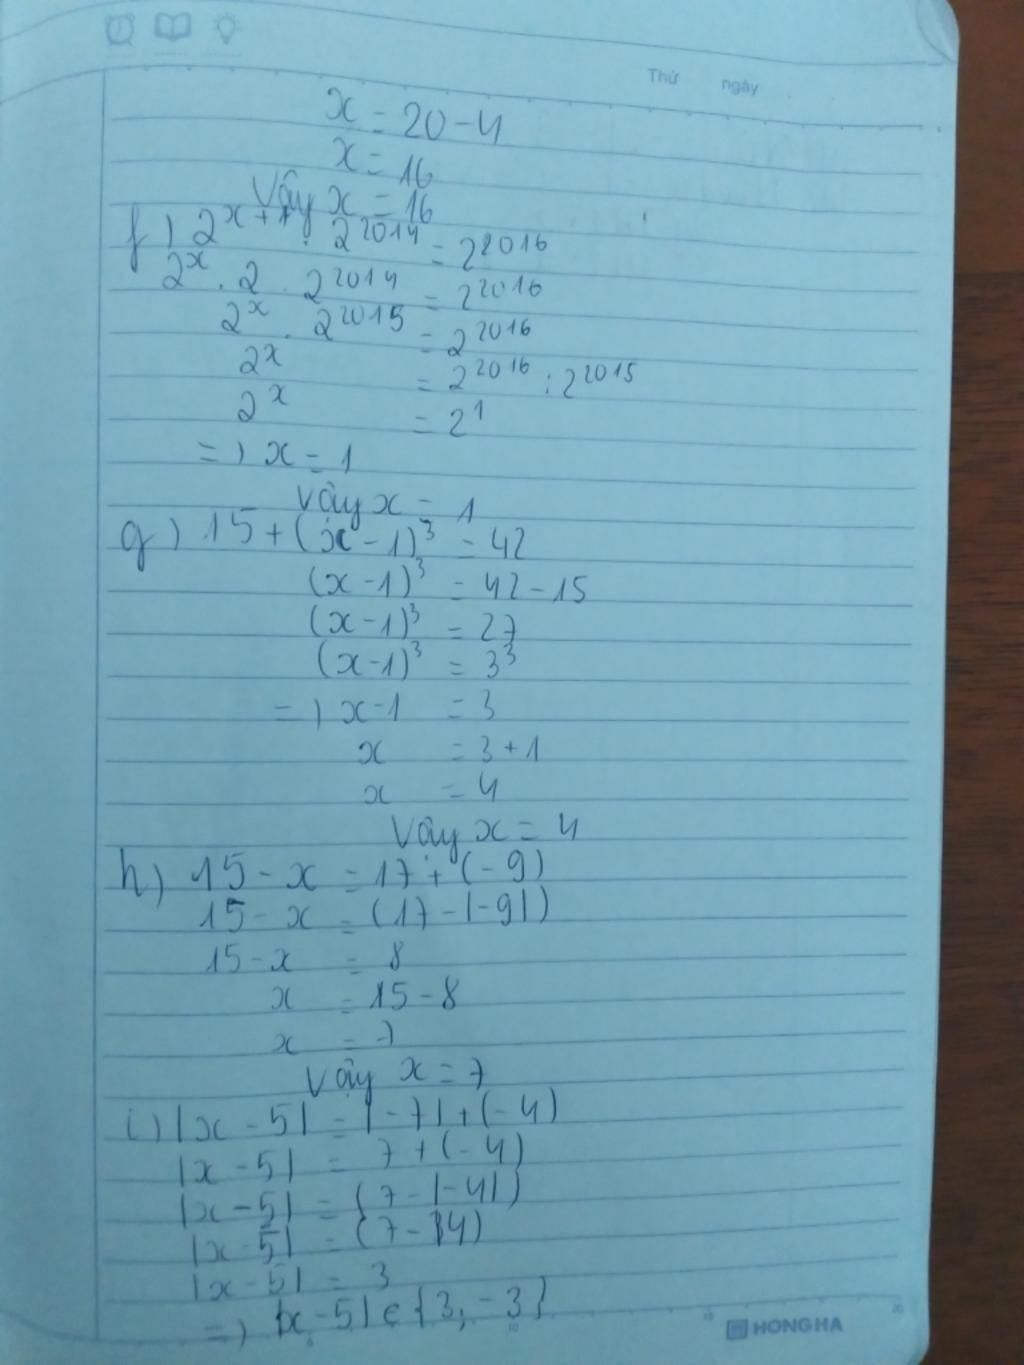 Thứ ngày
x = 20 - 4
x = 16
Vậy x = 16
f) 2^{x+1} . 2^{2014} = 2^{2016}
2^x . 2 . 2^{2014} = 2^{2016}
2^x . 2^{2015} = 2^{2016}
2^x = 2^{2016} : 2^{2015}
2^x = 2^1
=) x = 1
Vậy x = 1
g) 15 + (x - 1)^3 = 42
(x - 1)^3 = 42 - 15
(x - 1)^3 = 27
(x - 1)^3 = 3^3
=) x - 1 = 3
x = 3 + 1
x = 4
Vậy x = 4
h) 15 - x = 17 + (-9)
15 - x = (17 - |-9|)
15 - x = 8
x = 15 - 8
x = 7
Vậy x = 7
i) |x - 5| = |-7| + (-4)
|x - 5| = 7 + (-4)
|x - 5| = (7 - |-4|)
|x - 5| = (7 - 4)
|x - 5| = 3
=) |x - 5| ∈ {3, -3}
HONG HA